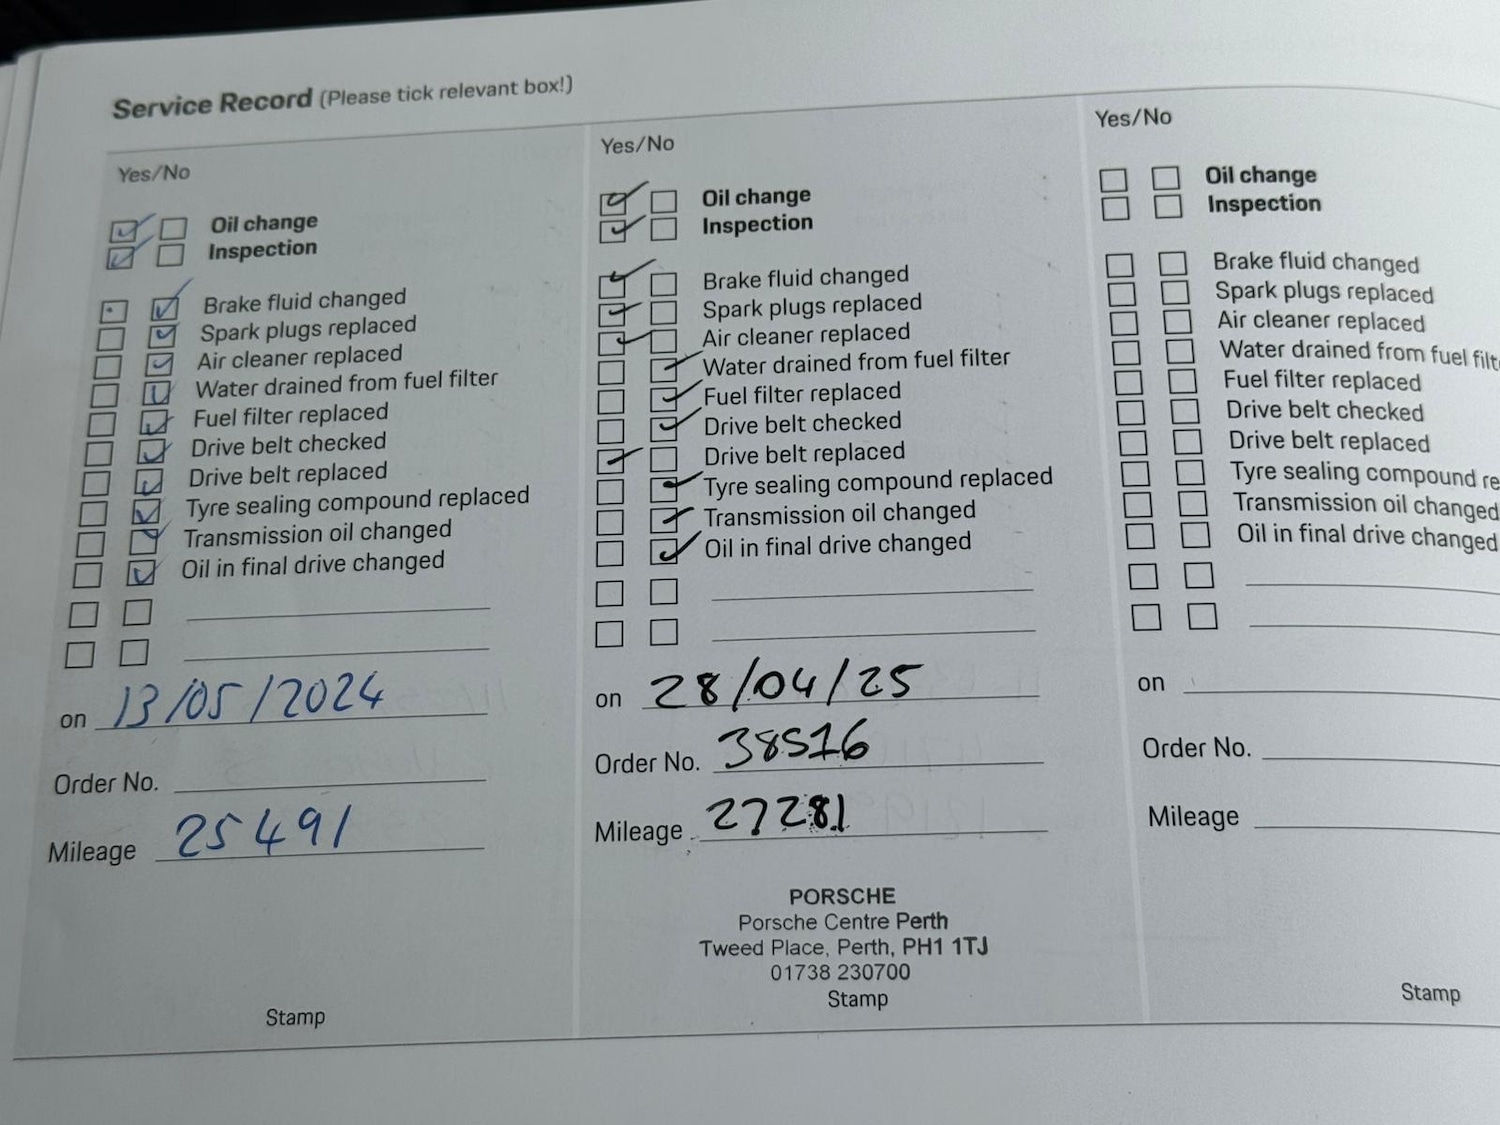 Service Record (Please tick relevant box!)
Yes/No
Oil change
Inspection
Brake fluid changed
Spark plugs replaced
Air cleaner replaced
Water drained from fuel filter
Fuel filter replaced
Drive belt checked
Drive belt replaced
Tyre sealing compound replaced
Transmission oil changed
Oil in final drive changed
on 13/05/2024
Order No.
Mileage 25491
Stamp
Yes/No
Oil change
Inspection
Brake fluid changed
Spark plugs replaced
Air cleaner replaced
Water drained from fuel filter
Fuel filter replaced
Drive belt checked
Drive belt replaced
Tyre sealing compound replaced
Transmission oil changed
Oil in final drive changed
on 28/04/25
Order No. 38516
Mileage 27281
PORSCHE
Porsche Centre Perth
Tweed Place, Perth, PH1 1TJ
01738 230700
Stamp
Yes/No
Oil change
Inspection
Brake fluid changed
Spark plugs replaced
Air cleaner replaced
Water drained from fuel filt
Fuel filter replaced
Drive belt checked
Drive belt replaced
Tyre sealing compound re
Transmission oil changed
Oil in final drive changed
on
Order No.
Mileage
Stamp